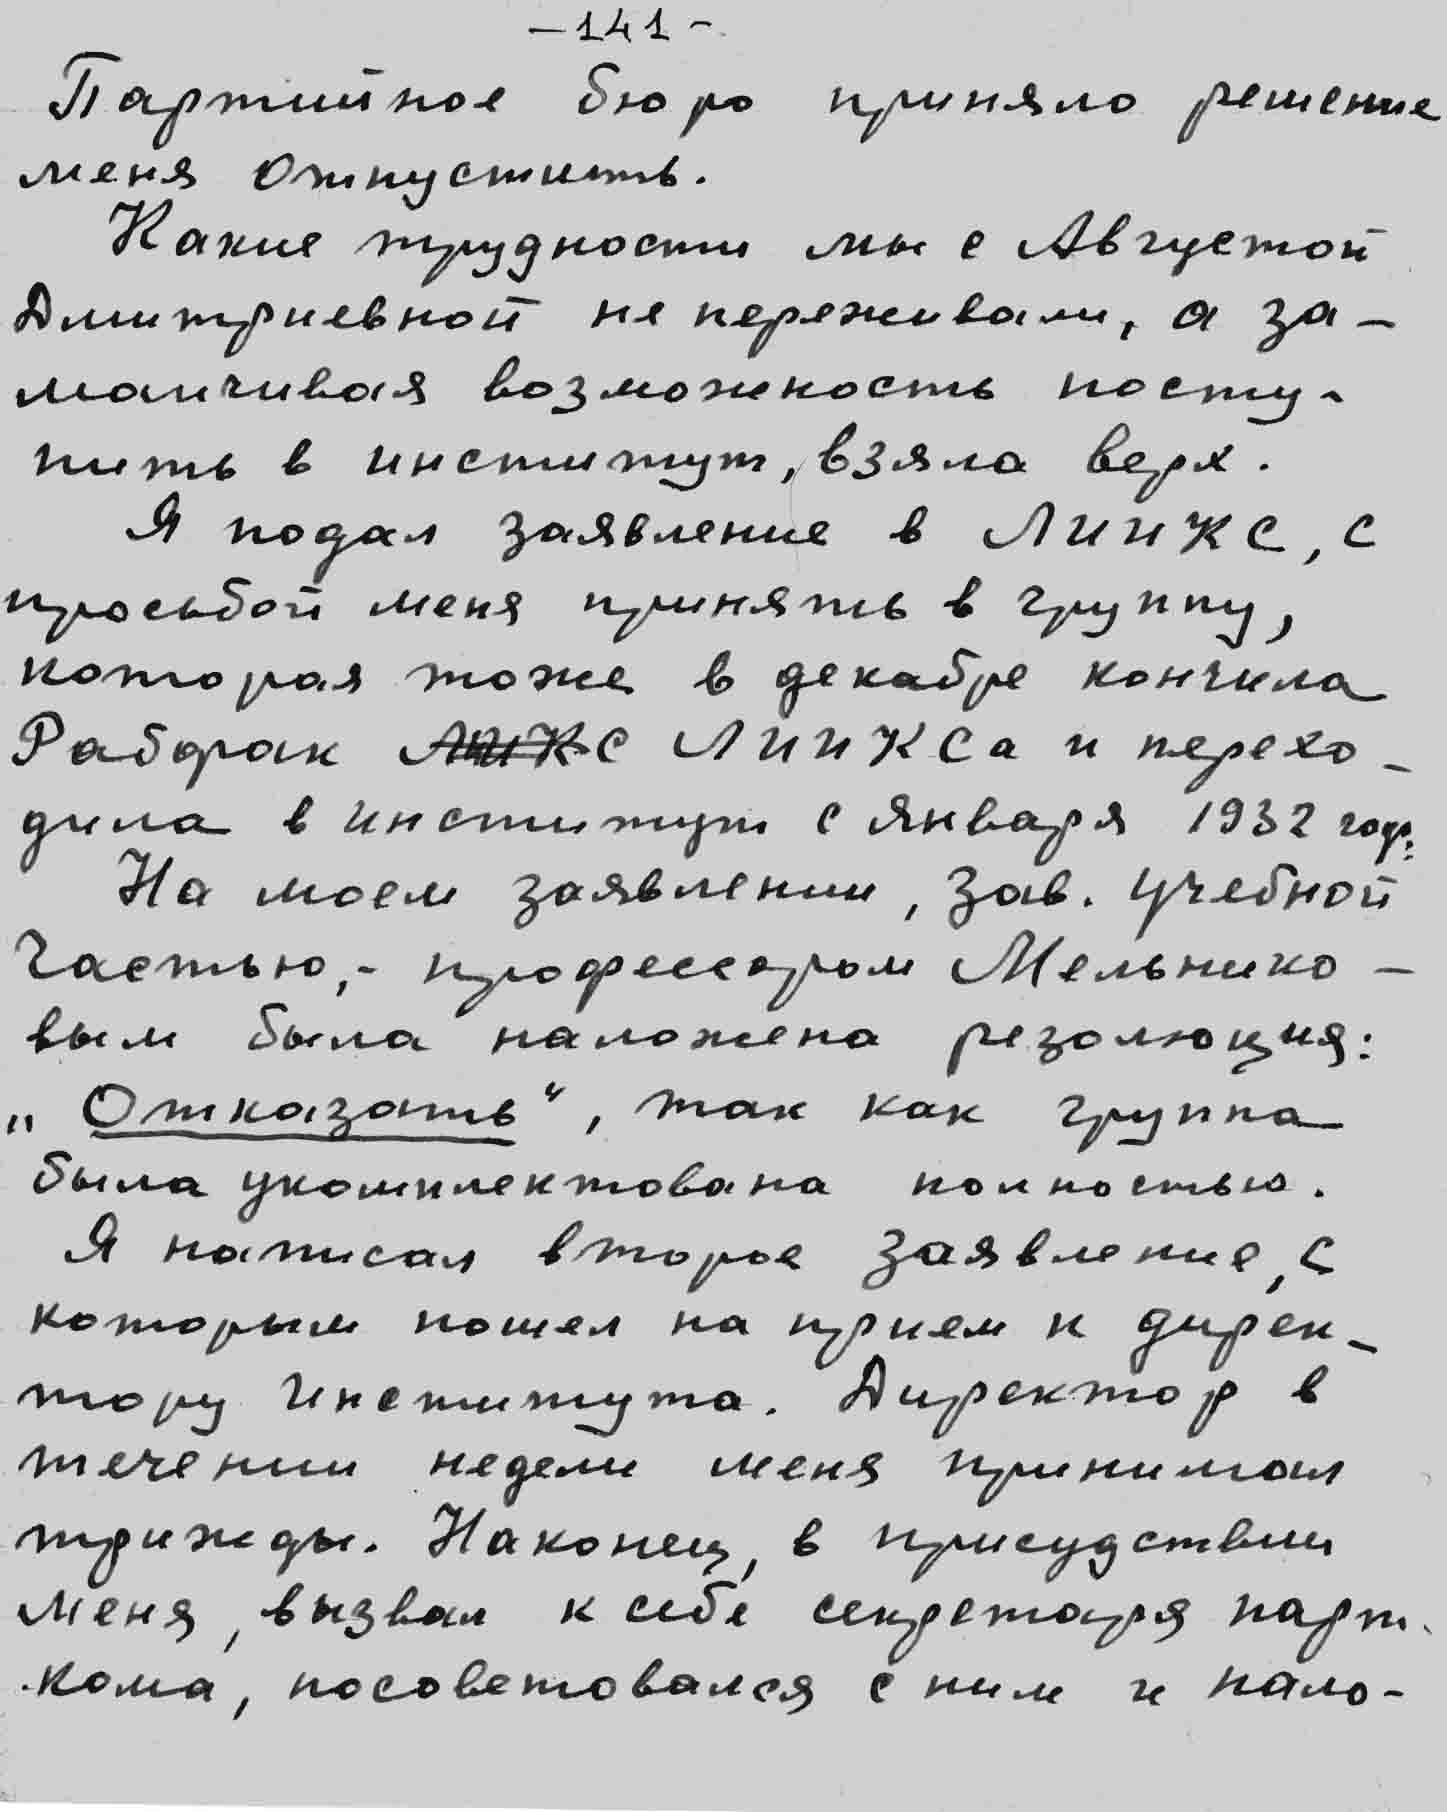 -141-
Партийное бюро приняло решение
меня отпустить.
Какие трудности мы с Августой
Дмитриевной не переживали, а за-
манчивая возможность посту-
пить в институт, взяла верх.
Я подал заявление в ЛИИКС, с
просьбой меня принять в группу,
которая тоже в декабре кончила
Рабфак ЛИИКСа и перехо-
дила в институт с января 1932 года.
На моем заявлении, зав. учебной
частью,- профессором Мельнико-
вым была наложена резолюция:
„Отказать“, так как группа
была укомплектована полностью.
Я написал второе заявление, с
которым пошел на прием к дирек-
тору института. Директор в
течении недели меня принимал
трижды. Наконец, в присудствии
меня, вызвал к себе секретаря парт-
кома, посоветовался с ним и нало-